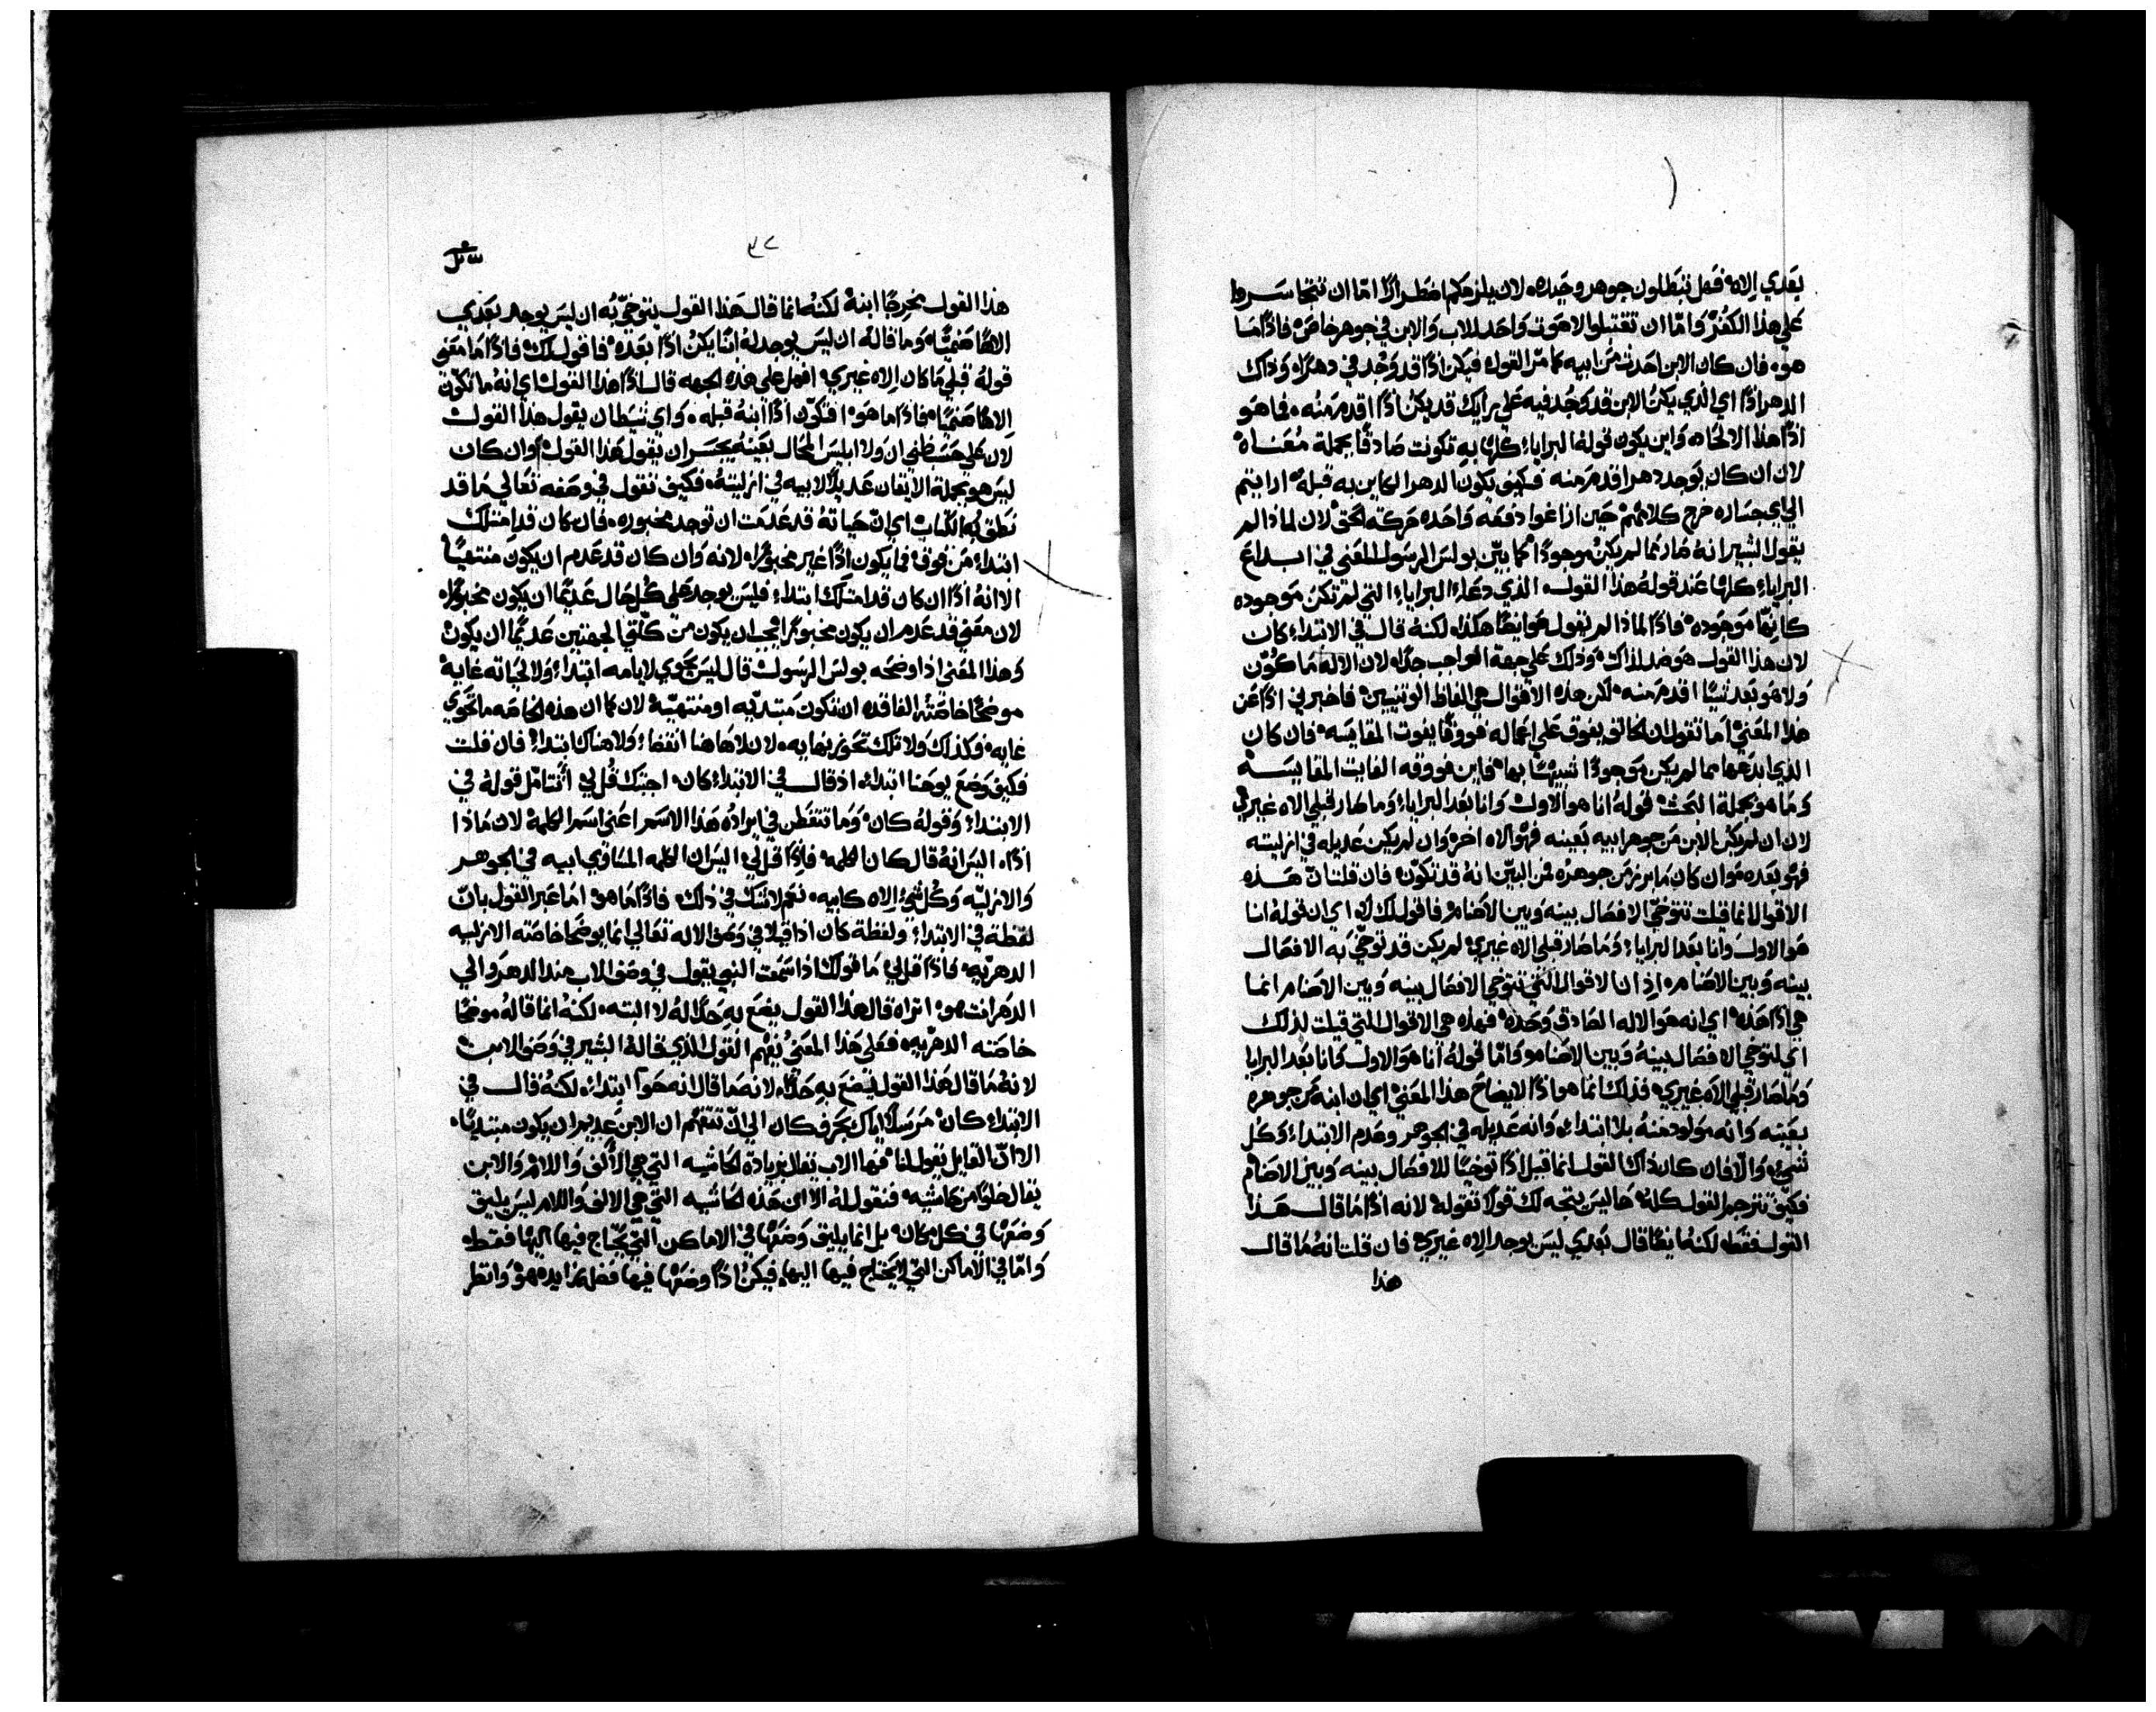 بعدي اله فهل تبطلون جوهر وحيده لان يلزمكم اضطرارًا اما ان تتجاسروا
على هذا الكفر واما ان تقتبلوا لاهوت واحد للاب والابن في جوهر خاص فاذًا ما
هو فان كان الابن احدث من ابيه كما مر القول فيكن اذًا قد وجد في دهرًا وذاك
الدهر اذًا اي الذي يكن الابن قد وجد فيه على رايك قد يكن اذًا اقدم منه فما هو
اذًا هذا الالحاد واين يكون قوله البرايا كلها به تكونت صادقًا بجملة معناه
لان ان كان يوجد دهر اقدم منه فكيف يكون الدهر الكاين به قبله ارايتم
الى اي جساره خرج كلامهم حين ازاغوا دفعه واحده حركة الحق لان لماذا لم
يقول البشير انه صار مما لم يكن موجودًا كما بين بولس الرسول المعنى في ابداع
البرايا كلها عند قوله هذا القول الذي دعا البرايا التي لم تكن موجوده
كانها موجوده فاذًا لماذا لم يقول هو ايضًا هكذا لكنه قال في الابتداء كان
لان هذا القول هو ضد لذاك وذلك على جهة الواجب جدًا لان الاله ما كون
ولا هو بعد شيًا اقدم منه لكن هذه الاقوال هي الفاظ الوثنيين فاخبرني اذًا عن
هذا المعنى اما تقول ان الخالق يفوق على اعماله فووقًا يفوت المقايسه فان كان
الذي ابدعها مما لم يكن موجودًا شبيهًا بها فاين فووقه الفايت المقايسه
وما هو بجملة البحث قوله انا هو الاول وانا بعد البرايا وما صار قبلي الاه غيري
لان ان لم يكن الابن من جوهر ابيه بعينه فهو الاه اخر وان لم يكن عديله في ازليته
فهو بعده وان كان ما برز من جوهره فمن البين انه قد تكون فان قلت ان هذه
الاقوال انما قيلت تتوخى الافصال بينه وبين الاصنام فاقول لك اي ان قوله انا
هو الاول وانا بعد البرايا وما صار قبلي الاه غيري لم يكن قد توخى به الافصال
بينه وبين الاصنام اذ ان الاقوال التي تتوخى الافصال بينه وبين الاصنام انما
هي اذًا هذه اي انه هو الاله الصادق وحده فهذه هي الاقوال التي قيلت لذلك
اي لتوخي الافصال بينه وبين الاصنام واما قوله انا هو الاول وانا بعد البرايا
وما صار قبلي الاه غيري فذلك انما هو اذًا لايضاح هذا المعنى اي ان ابنه من جوهره
بعينه وانه مولود منه بلا ابتداء وانه عديله في الجوهر وعدم الابتداء وكل
شيء والا فان كان ذاك القول انما قيل اذًا توخيًا للافصال بينه وبين الاصنام
فكيف تترجم القول كله ها ليس يتجه لك قولًا تقوله لانه اذًا ما قال هذا
القول فقط لكنه ايضًا قال بعدي ليس يوجد الاه غيري فان قلت انه ما قال
هذا
٣٢
هذا القول مخرجًا ابنه لكنه انما قال هذا القول يتوخى به ان ليس يوجد بعدي
الاهًا صنميًا وما قاله ان ليس يوجد له ابنًا يكن اذًا بعده فاقول لك فاذًا ما معنى
قوله قبلي ما كان الاه غيري افهل على هذه الجهه قال اذًا هذا القول اي انه ما تكون
الاهًا صنميًا فاذًا ما هو افتكون اذًا ابنه قبله واي شيطان يقول هذا القول
لان على حسب ظني ان ولا ابليس المحال بعينه يجسر ان يقول هذا القول وان كان
ليس هو بجملة الايقان عديلًا لابيه في ازليته فكيف تقول في وصفه تعالى ما قد
نطق به الكتاب اي ان حياته قد عدمت ان توجد محبوره فان كان قد امتلك
ابتداء من فوق فما يكون اذًا غير محبورًا لانه وان كان قد عدم ان يكون منتهيًا
الا انه اذًا ان كان قد امتلك ابتداء فليس يوجد على كل حال عديمًا ان يكون محبورًا
لان معنى قد عدم ان يكون محبورًا يجب ان يكون من كلتي الجهتين عديمًا ان يكون
وهذا المعنى اذ اوضحه بولس الرسول قال ليس يحوي لايامه ابتداء ولا لحياته غايه
موضحًا خاصته الفاقده ان تكون مبتديه او منتهيه لان كما ان هذه الخاصه ما تحوي
غايه فكذلك ولا تلك تحوز نهايه لان لا هاهنا انقضا ولا هناك ابتدا فان قلت
فكيف وضع يوحنا ابتداء اذ قال في الابتداء كان اجبتك قل لي انتامل قوله في
الابتداء وقوله كان وما تتفطن في ايراده هذا الاسم اعني اسم الكلمه لان ماذا
اذًا اليس انه قال كان الكلمه فاذًا قل لي اليس ان الكلمه المساوي ابيه في الجوهر
والازليه وكل شيء الاه كابيه نعم لا شك في ذلك فاذًا ما هو اما عبر القول بان
لفظة في الابتداء ولفظة كان اذا قيلا في وصف الاله تعالى انما يوضحا خاصته الازليه
الدهريه فاذًا قل لي ما قولك اذا سمعت النبي يقول في وصف الاب منذ الدهر والى
الدهر انت هو اتراه قال هذا القول يضع به حدًا له لا البته لكنه انما قاله موضحًا
خاصته الدهريه فعلى هذا المعنى تفهم القول الذي قاله البشير في وصف الابن
لانه ما قال هذا القول ليضع به حدًا لانه ما قال انه حوا ابتداء لكنه قال في
الابتداء كان مرسلًا اياك بحرف كان الى ان تتفهم ان الابن عديم ان يكون مبتديًا
الا ان القايل يقول لنا فها الاب يقال بزيادة الحاشيه التي هي الالف واللام والابن
يقال خلوًا من حاشيه فنقول له الا ان هذه الحاشيه التي هي الالف واللام ليس يليق
وضعها في كل مكان بل انما يليق وضعها في الاماكن التي تحتاج فيها اليها فقط
واما في الاماكن التي لا يحتاج فيها اليها فيكن اذًا وضعها فيها فضله زايده هو وانظر